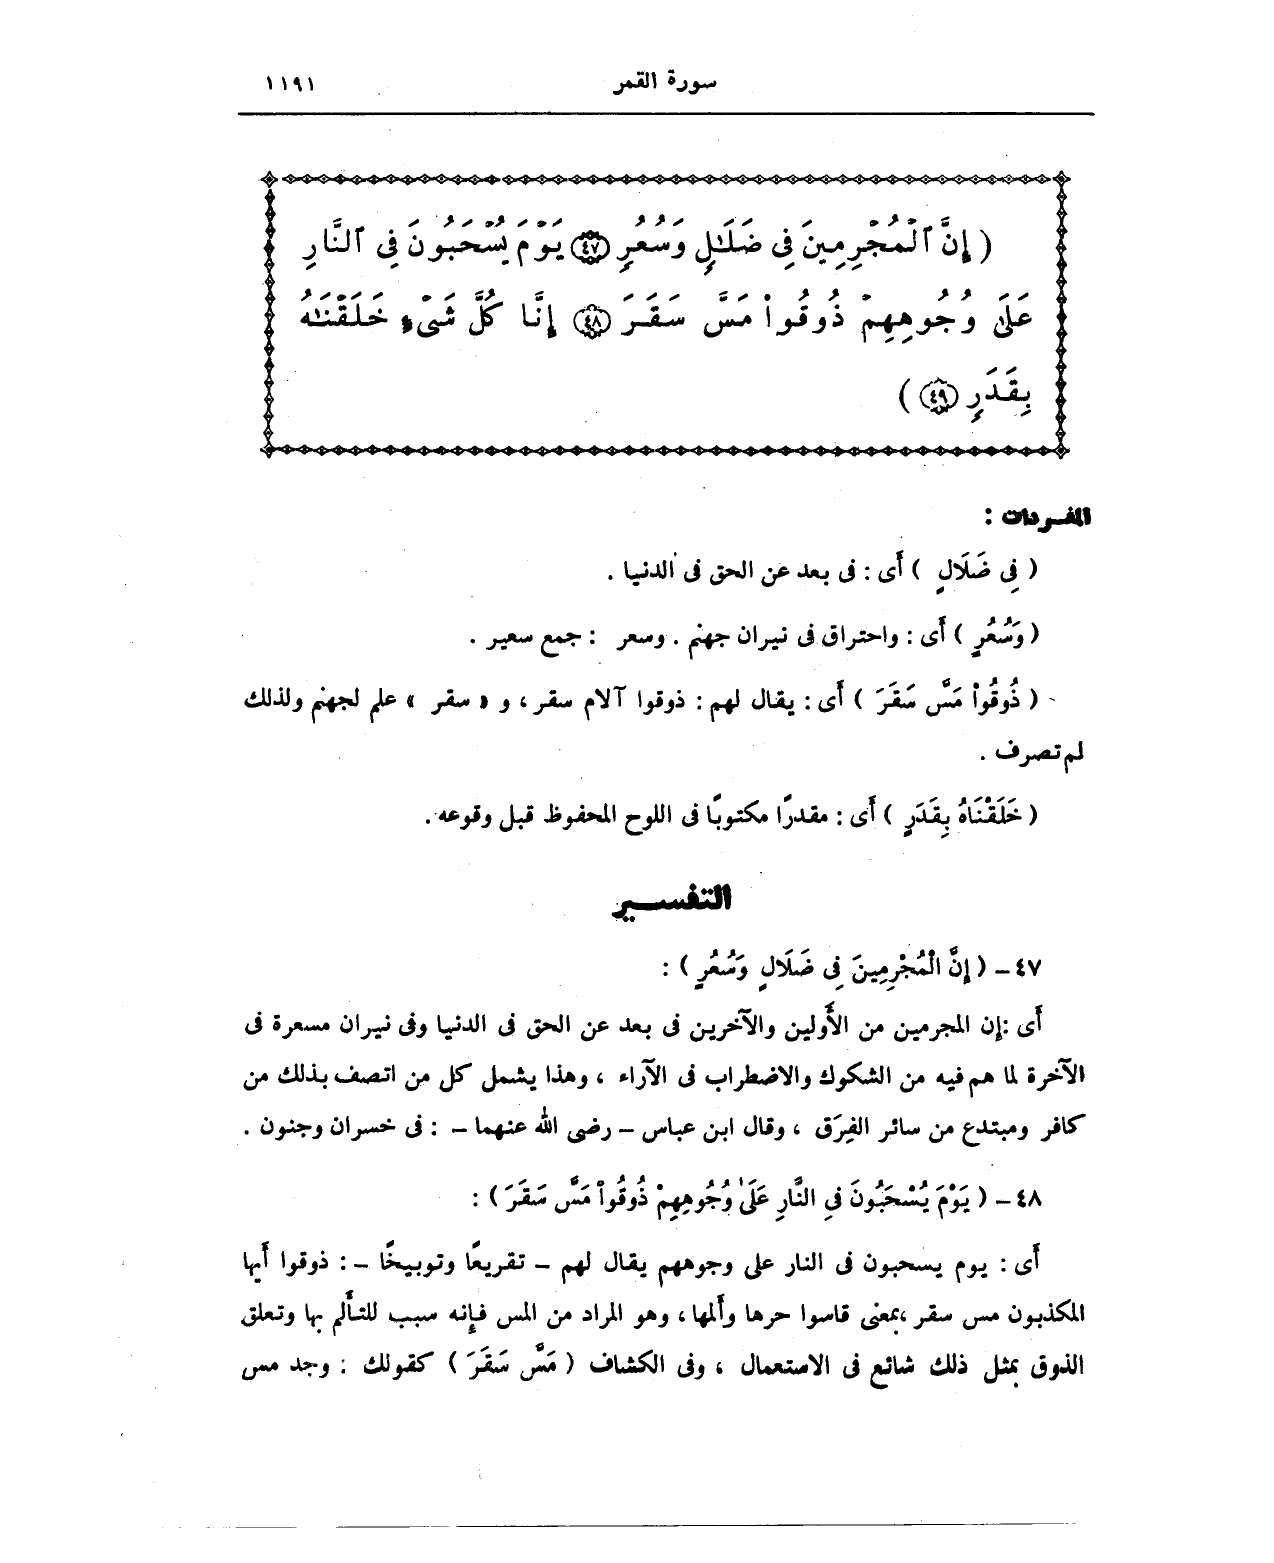 سورة القمر ١١٩١
( إِنَّ ٱلْمُجْرِمِينَ فِى ضَلَـٰلٍ وَسُعُرٍ ٤٧ يَوْمَ يُسْحَبُونَ فِى ٱلنَّارِ
عَلَىٰ وُجُوهِهِمْ ذُوقُوا۟ مَسَّ سَقَرَ ٤٨ إِنَّا كُلَّ شَىْءٍ خَلَقْنَـٰهُ
بِقَدَرٍ ٤٩ )
المفردات :
( فِى ضَلَالٍ ) أَى : فى بعد عن الحق فى الدنيا .
( وَسُعُرٍ ) أَى : واحتراق فى نيران جهنم . وسعر : جمع سعير .
( ذُوقُواْ مَسَّ سَقَرَ ) أَى : يقال لهم : ذوقوا آلام سقر ، و « سقر » علم لجهنم ولذلك
لم تصرف .
( خَلَقْنَاهُ بِقَدَرٍ ) أَى : مقدرًا مكتوبًا فى اللوح المحفوظ قبل وقوعه .
التفسـير
٤٧ – ( إِنَّ الْمُجْرِمِينَ فِى ضَلَالٍ وَسُعُرٍ ) :
أَى : إن المجرمين من الأَولين والآخرين فى بعد عن الحق فى الدنيا وفى نيران مسعرة فى
الآخرة لما هم فيه من الشكوك والاضطراب فى الآراء ، وهذا يشمل كل من اتصف بذلك من
كافر ومبتدع من سائر الفِرَق ، وقال ابن عباس – رضى الله عنهما – : فى خسران وجنون .
٤٨ – ( يَوْمَ يُسْحَبُونَ فِى النَّارِ عَلَىٰ وُجُوهِهِمْ ذُوقُواْ مَسَّ سَقَرَ ) :
أَى : يوم يسحبون فى النار على وجوههم يقال لهم – تقريعًا وتوبيخًا – : ذوقوا أَيها
المكذبون مس سقر ، بمعنى قاسوا حرها وأَلمها ، وهو المراد من المس فإِنه سبب للتأَلم بها وتعلق
الذوق بمثل ذلك شائع فى الاستعمال ، وفى الكشاف ( مَسَّ سَقَرَ ) كقولك : وجد مس